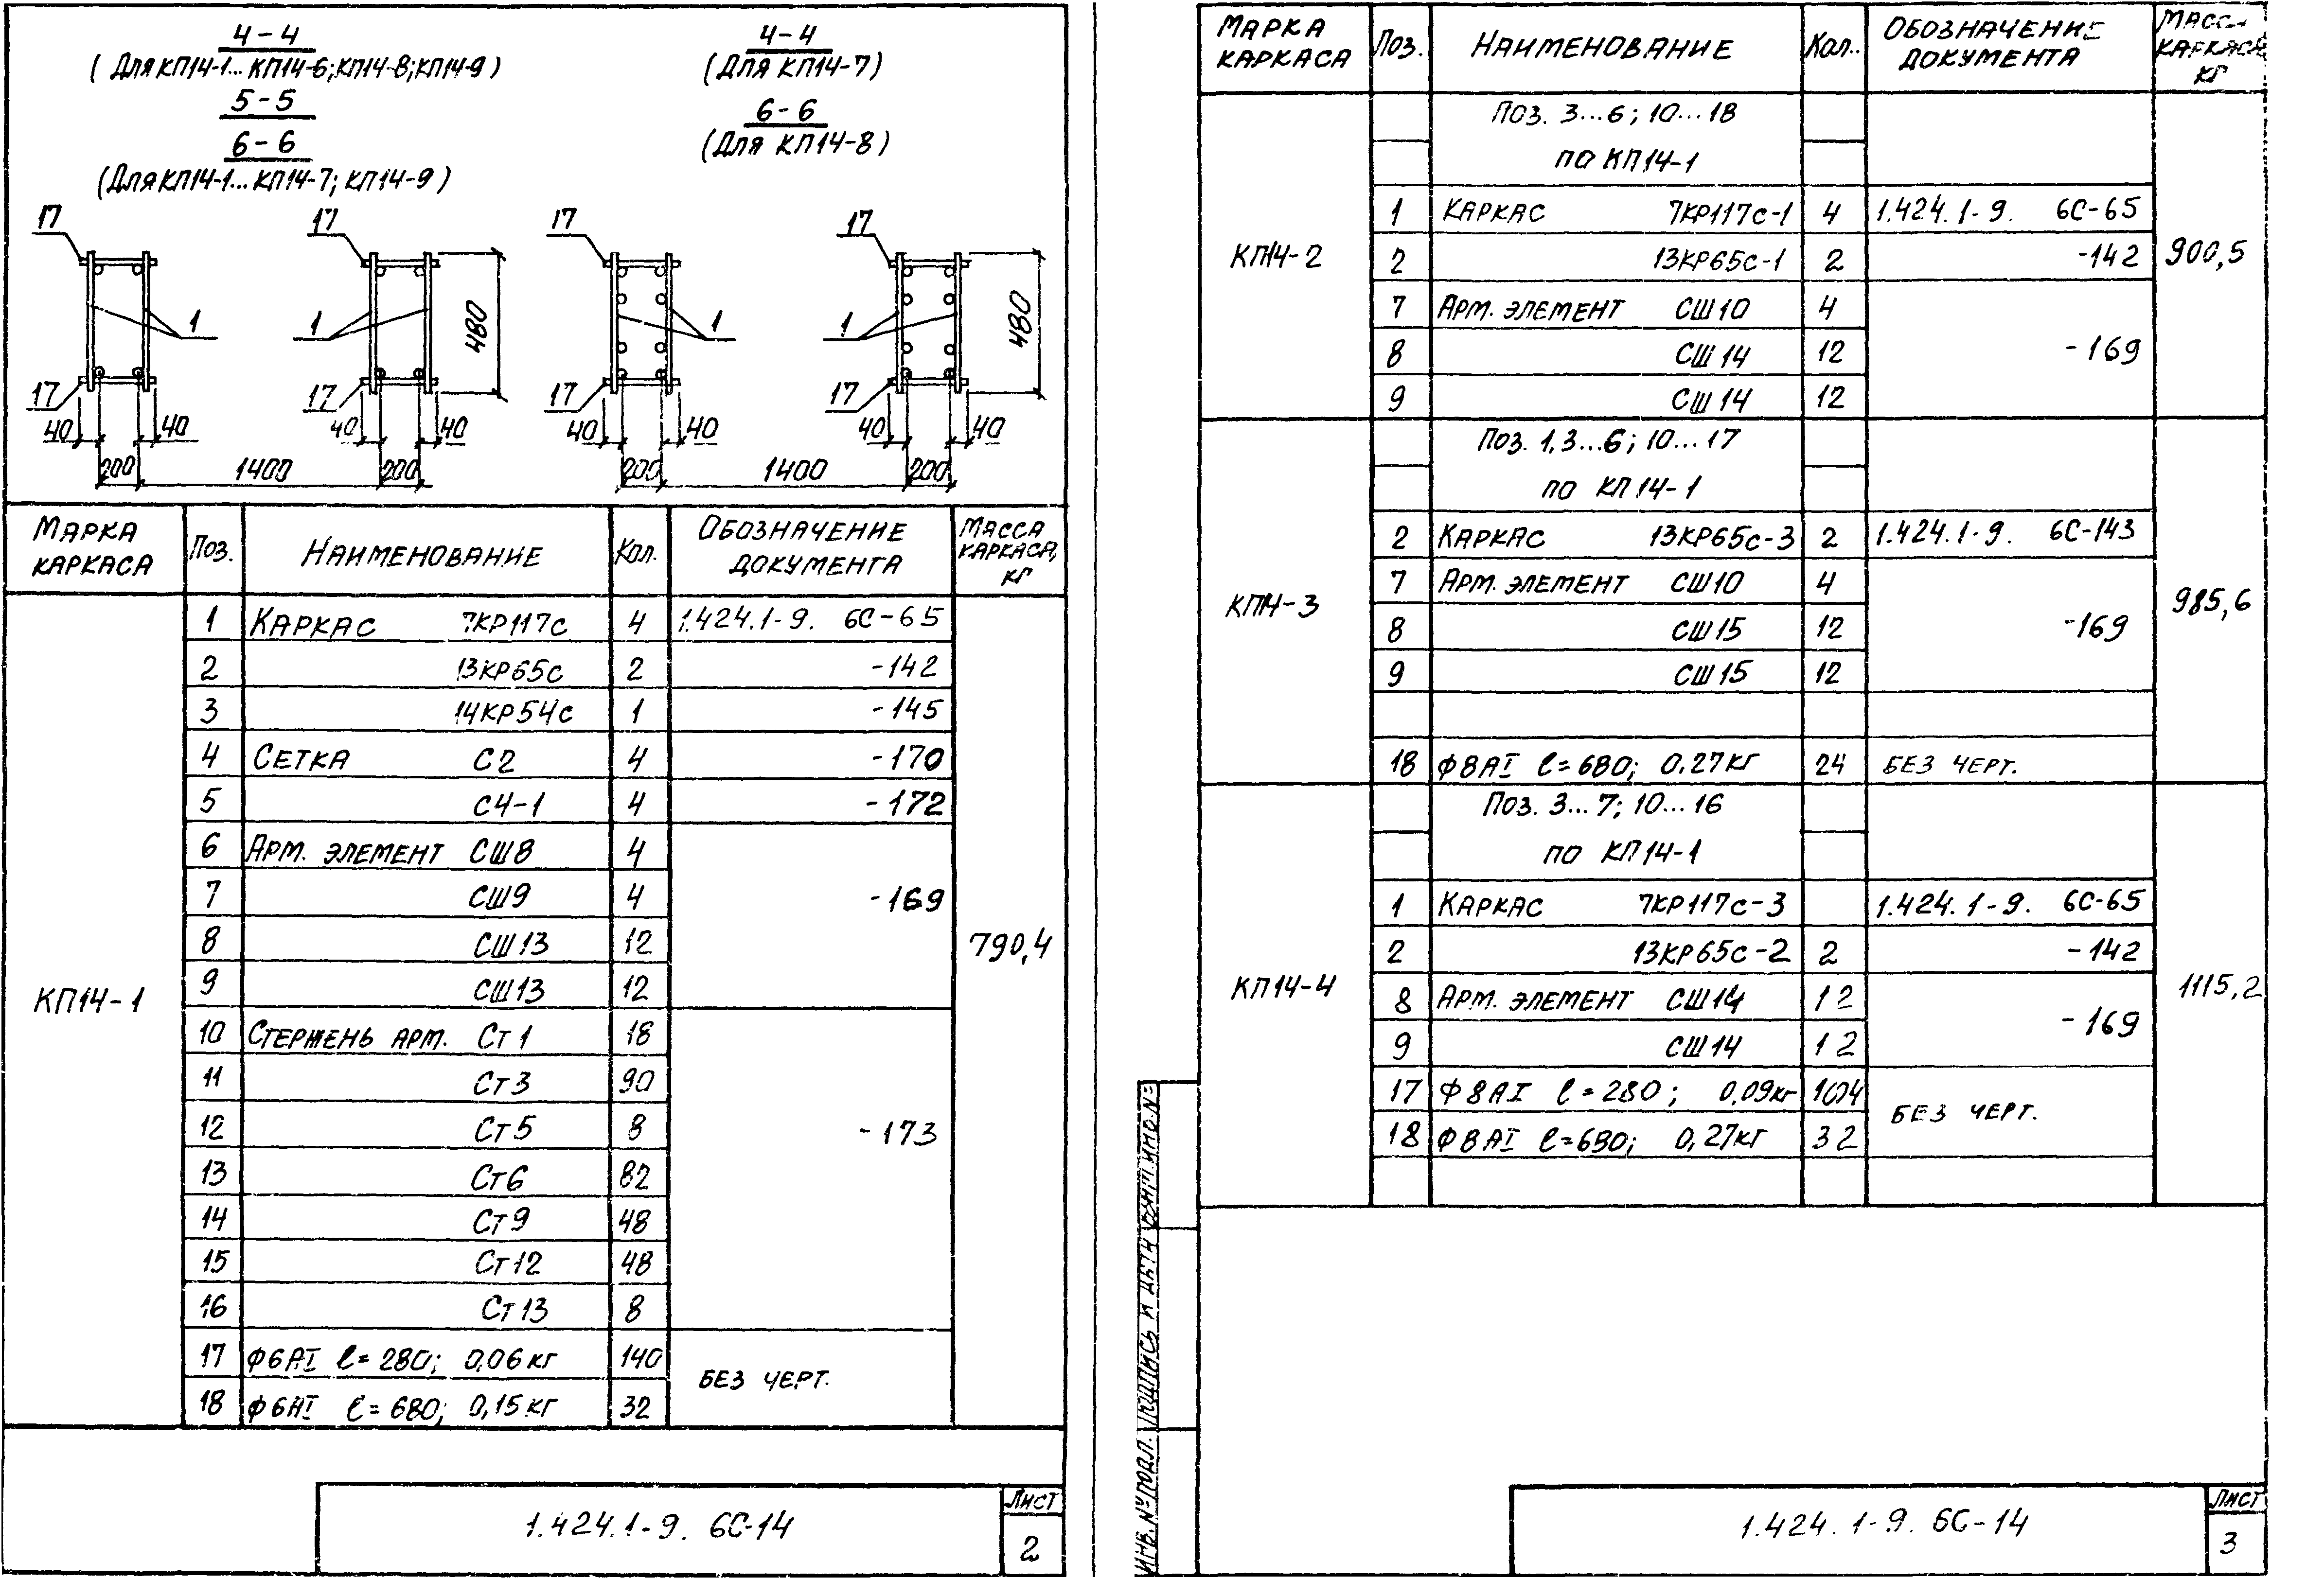 4-4
(Для КП14-1... КП14-6; КП14-8; КП14-9)
5-5
6-6
(Для КП14-1... КП14-7; КП14-9)
4-4
(Для КП14-7)
6-6
(Для КП14-8)
17 17 17 17
1 1 480 1 1 480
17 17 17 17
40 40 40 40 40 40 40 40
200 1400 200 200 1400 200
Марка каркаса Поз. Наименование Кол. Обозначение документа Масса каркаса, кг
КП14-1 790,4
1 Каркас 7КР117с 4 1.424.1-9. 6С-65
2 13КР65с 2 -142
3 14КР54с 1 -145
4 Сетка С2 4 -170
5 С4-1 4 -172
6 Арм. элемент СШ8 4
7 СШ9 4 -169
8 СШ13 12
9 СШ13 12
10 Стержень арм. Ст1 18
11 Ст3 90
12 Ст5 8 -173
13 Ст6 82
14 Ст9 48
15 Ст12 48
16 Ст13 8
17 Ф6АI ℓ=280; 0,06кг 140 без черт.
18 Ф6АI ℓ=680; 0,15кг 32
1.424.1-9. 6С-14
Лист
2
Марка каркаса Поз. Наименование Кол. Обозначение документа Масса каркаса кг
КП14-2 900,5
Поз. 3...6; 10...18
по КП14-1
1 Каркас 7КР117с-1 4 1.424.1-9. 6С-65
2 13КР65с-1 2 -142
7 Арм. элемент СШ10 4
8 СШ14 12 -169
9 СШ14 12
КП14-3 985,6
Поз. 1,3...6; 10...17
по КП14-1
2 Каркас 13КР65с-3 2 1.424.1-9. 6С-143
7 Арм. элемент СШ10 4
8 СШ15 12 -169
9 СШ15 12
18 Ф8АI ℓ=680; 0,27кг 24 без черт.
КП14-4 1115,2
Поз. 3...7; 10...16
по КП14-1
1 Каркас 7КР117с-3 1.424.1-9. 6С-65
2 13КР65с-2 2 -142
8 Арм. элемент СШ14 12
9 СШ14 12 -169
17 Ф8АI ℓ=280; 0,09кг без черт.
18 Ф8АI ℓ=680; 0,27кг 32
Инв. № подл. Подпись и дата
1.424.1-9. 6С-14
Лист
3